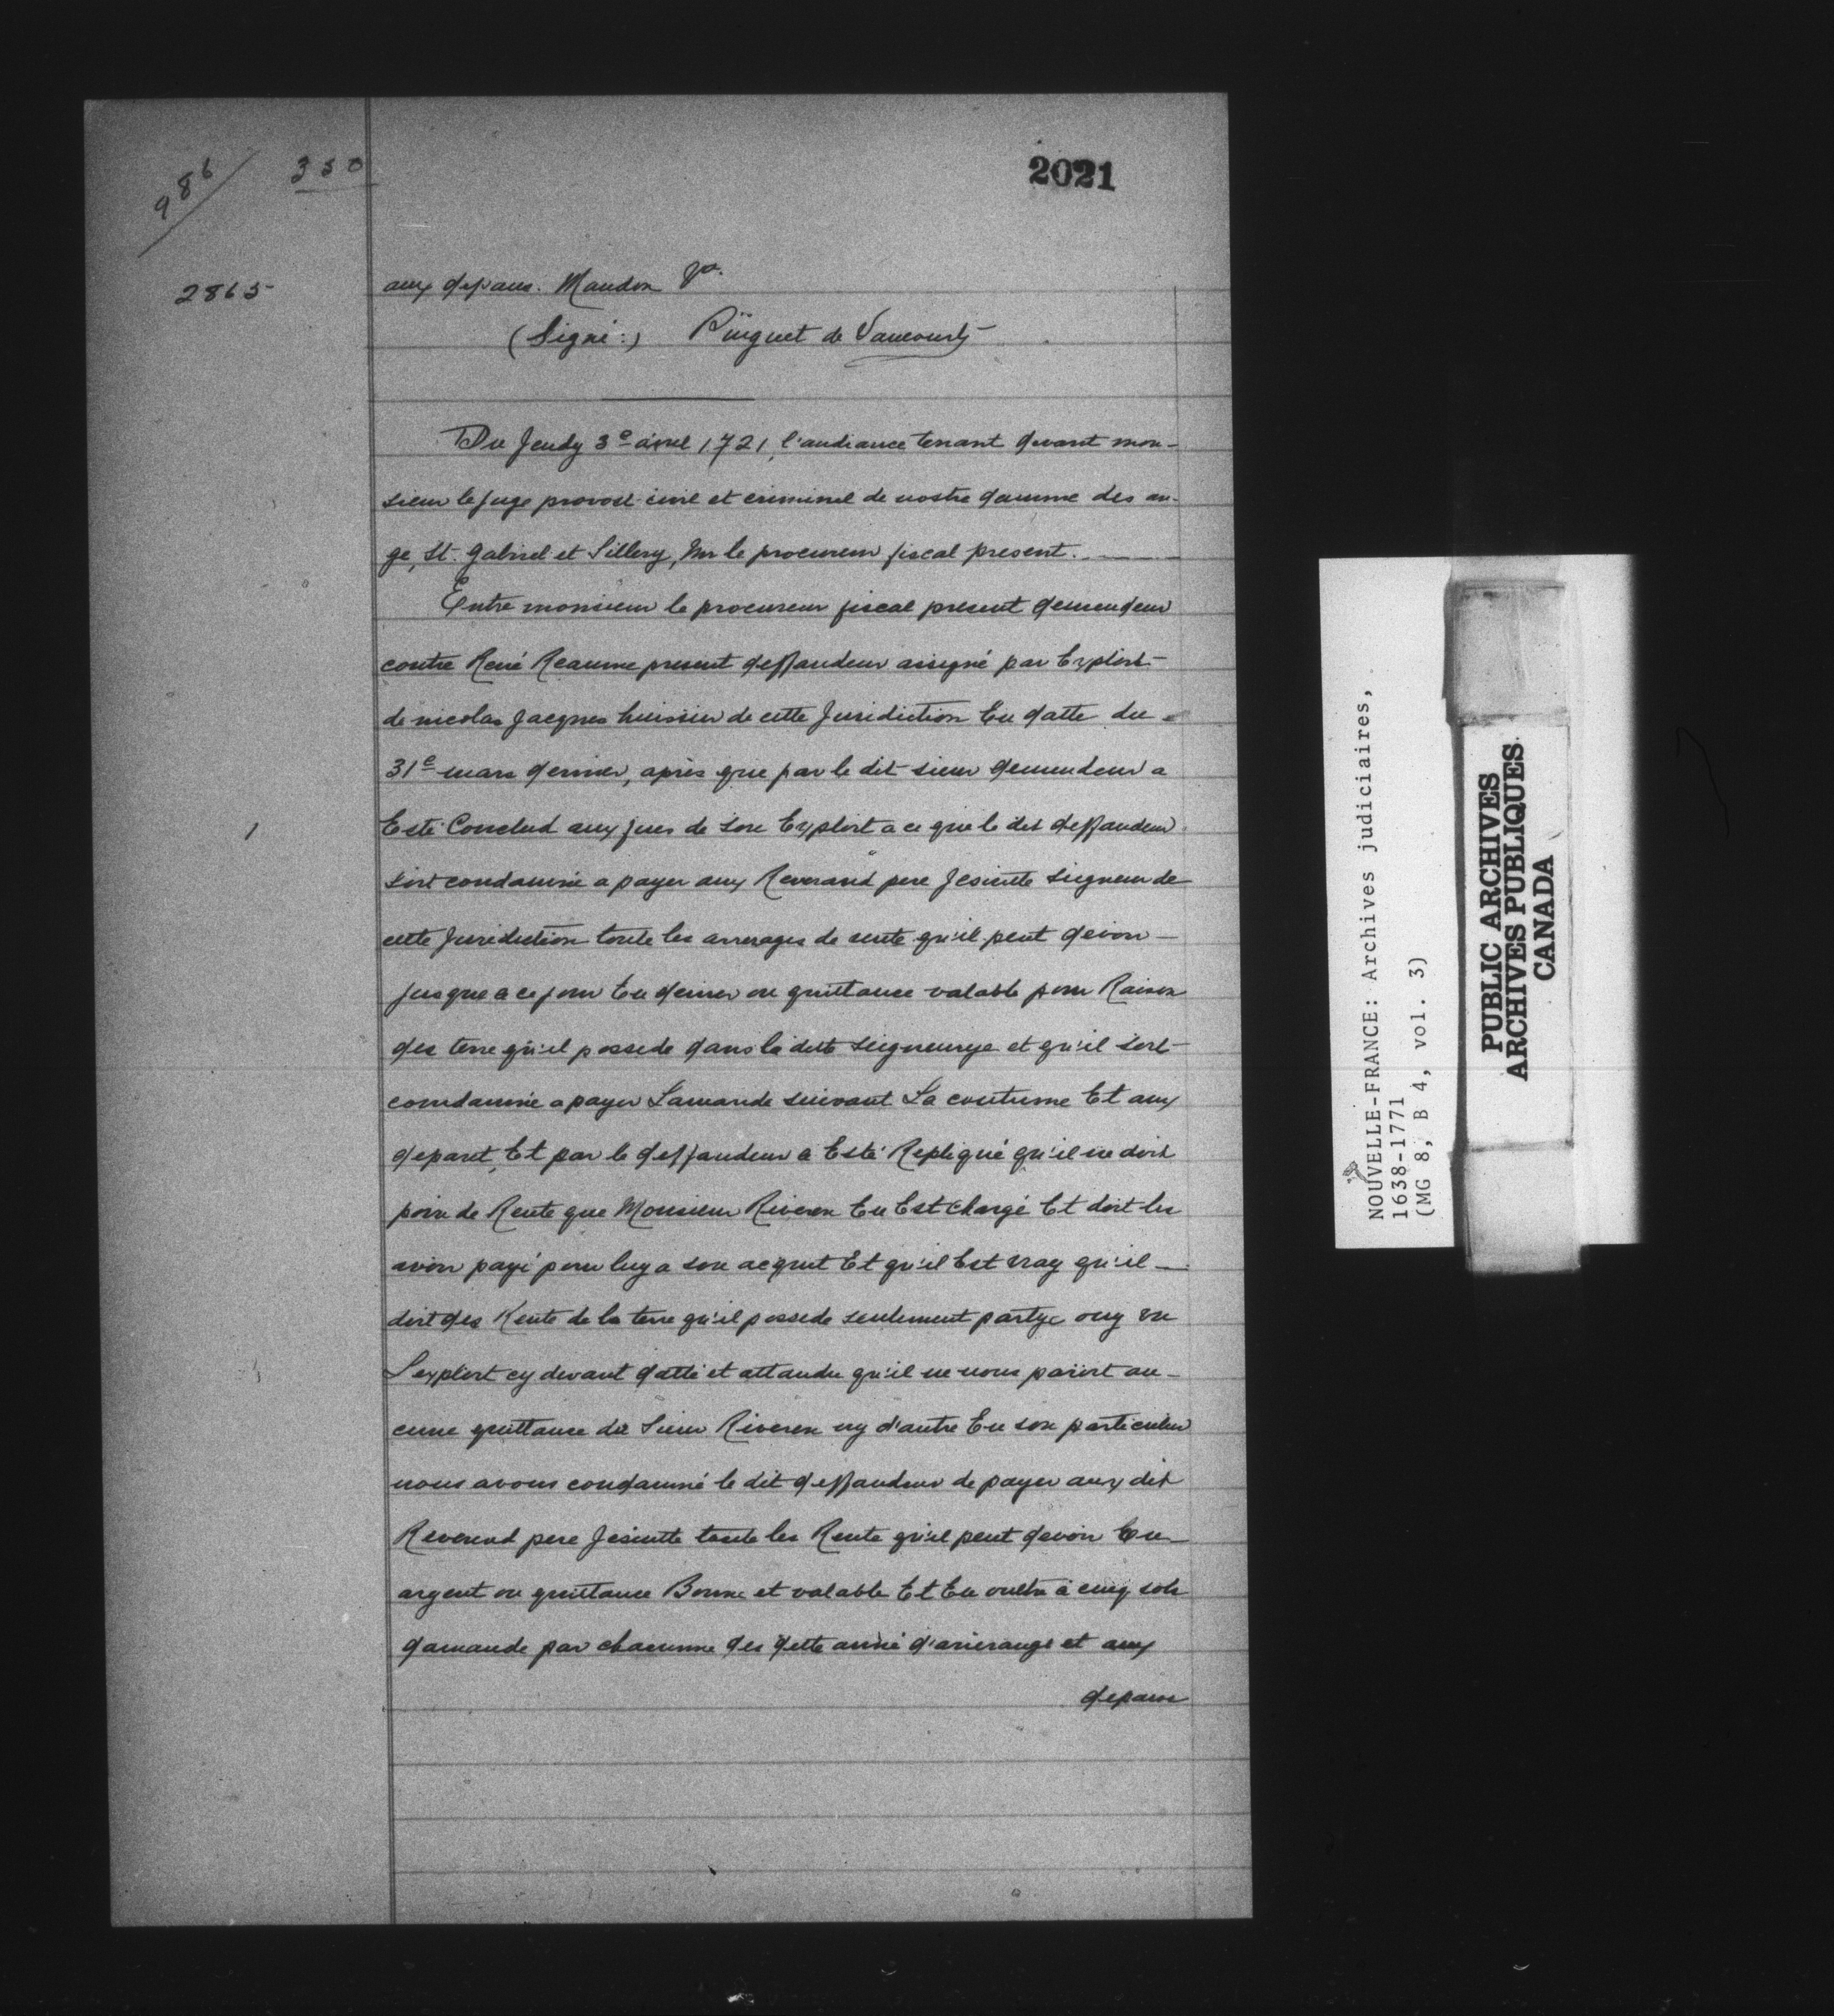 986
350
2021
2865
aux depans. Mandon &a.
(Signé:) Pinguet de Vaucourt
Du Jeudy 3e avril 1721, l'audiance tenant devant mon-
sieur le juge provost civil et criminel de nostre damme des an-
ge, St. Gabriel et Sillery, Mr le procureur fiscal present.
Entre monsieur le procureur fiscal present demendeur
contre René Reaume present deffandeur assigné par Exploit
de nicolas Jacques huissier de cette Juridiction En datte du
31e mars dernier, après que par le dit sieur demendeur a
1
Esté Conclud aux fins de son Exploit a ce que le dit deffandeur
soit condamné a payer aux Reverand pere Jesuitte Seigneur de
cette Juridiction toute les arrerages de rente qu'il peut devoir
jusque a ce jour En denier ou quittance valable pour Raison
des terre qu'il possede dans la ditte Seigneurye et qu'il soit
comdamné a payer Lamande suivant La coutume Et aux
depant, Et par le deffandeur a Esté Repliqué qu'il ne doit
poin de Rente que Monsieur Riveren En Est chargé Et doit les
avoir payé pour luy a son acquit Et qu'il Est vray qu'il
doit des Rente de la terre qu'il possede seulement partye ouy vu
L'exploit cy devant datté et attandu qu'il ne nous paroit au-
cune quittance du Sieur Riveren ny d'autre En son particulier
nous avons condamné le dit deffandeur de payer aux dit
Reverend pere Jesuitte toute les Rente qu'il peut devoir En
argent ou quittance Bonne et valable Et En oultre à cinq sols
damande par chacunne des dette année d'arierange et aux
depans
NOUVELLE-FRANCE: Archives judiciaires,
1638-1771
(MG 8, B 4, vol. 3)
PUBLIC ARCHIVES
ARCHIVES PUBLIQUES
CANADA